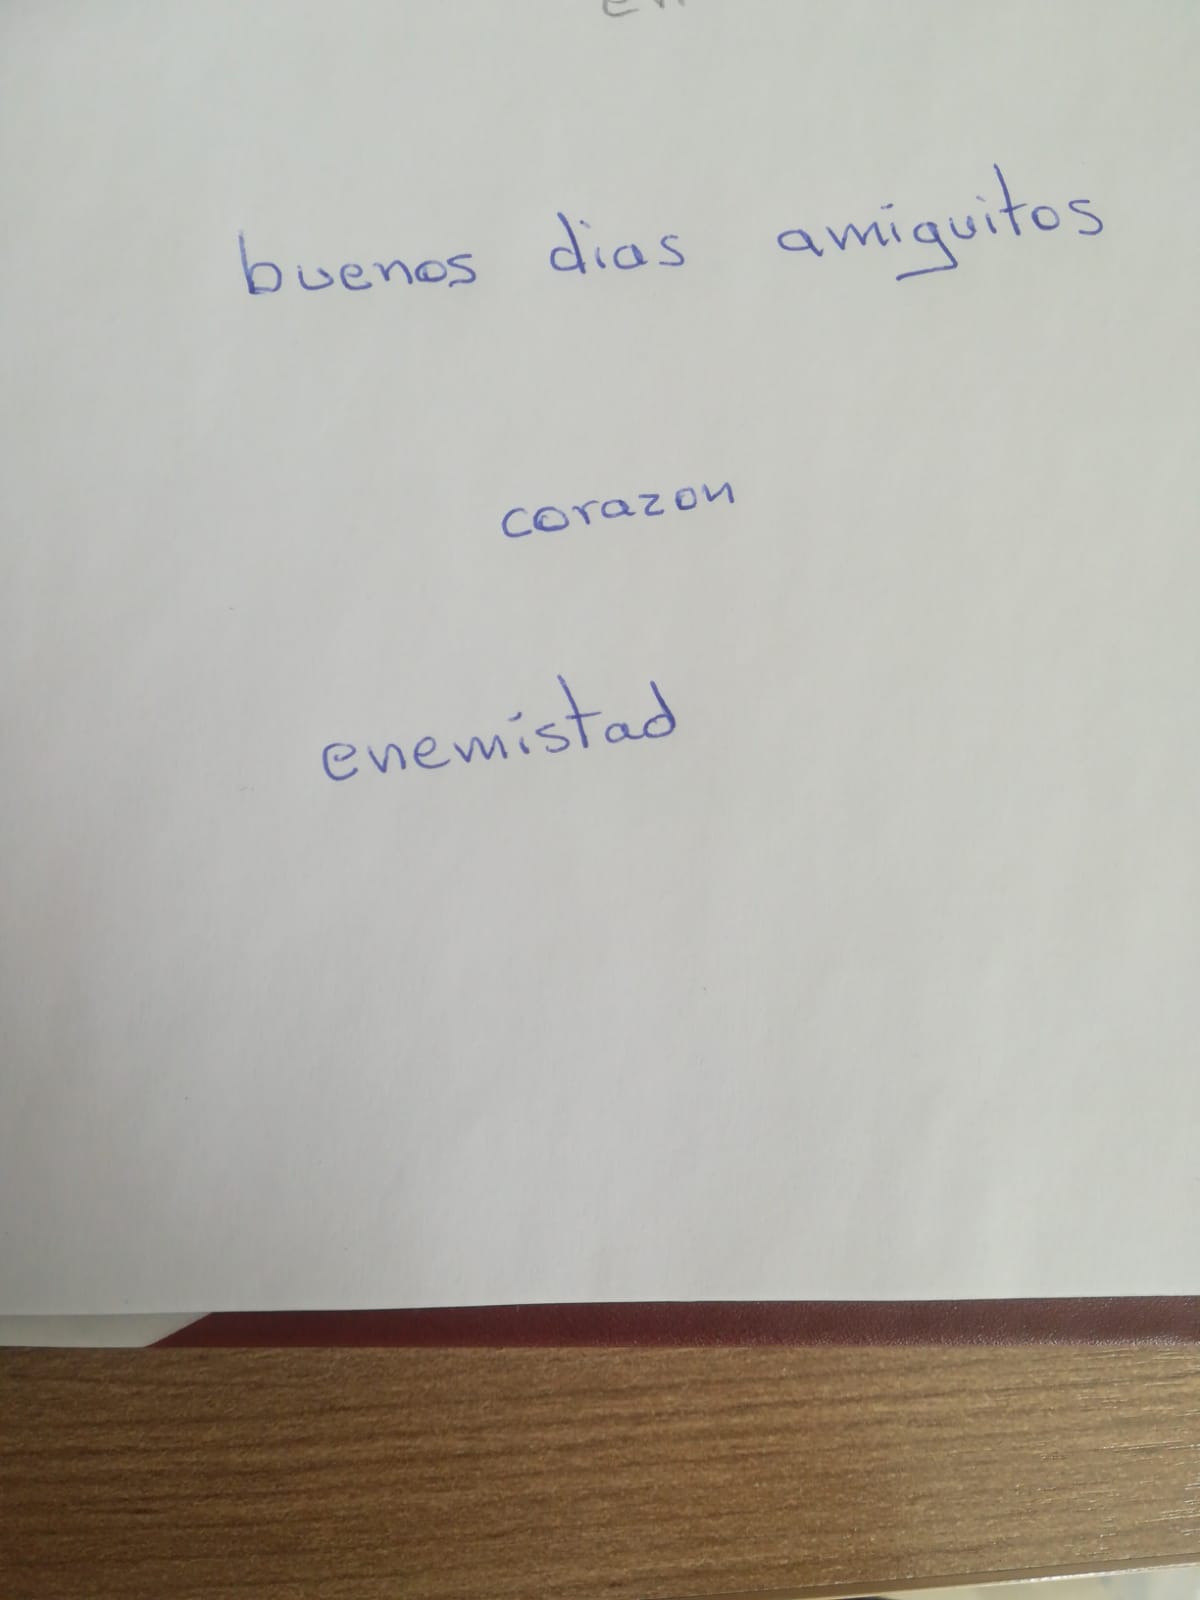 buenos dias amiguitos
corazon
enemistad